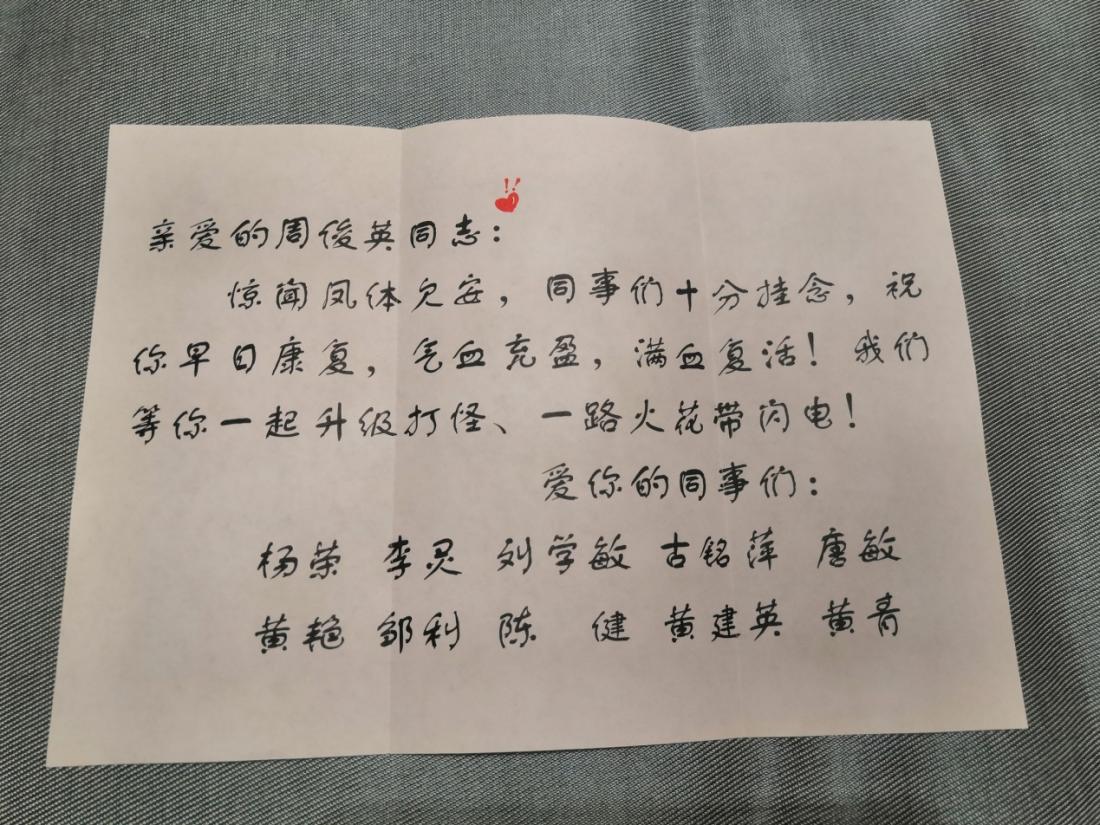 亲爱的周俊英同志：
惊闻凤体欠安，同事们十分挂念，祝
你早日康复，气血充盈，满血复活！我们
等你一起升级打怪、一路火花带闪电！
爱你的同事们：
杨荣 李灵 刘学敏 古铭萍 唐敏
黄艳 邹利 陈 健 黄建英 黄青